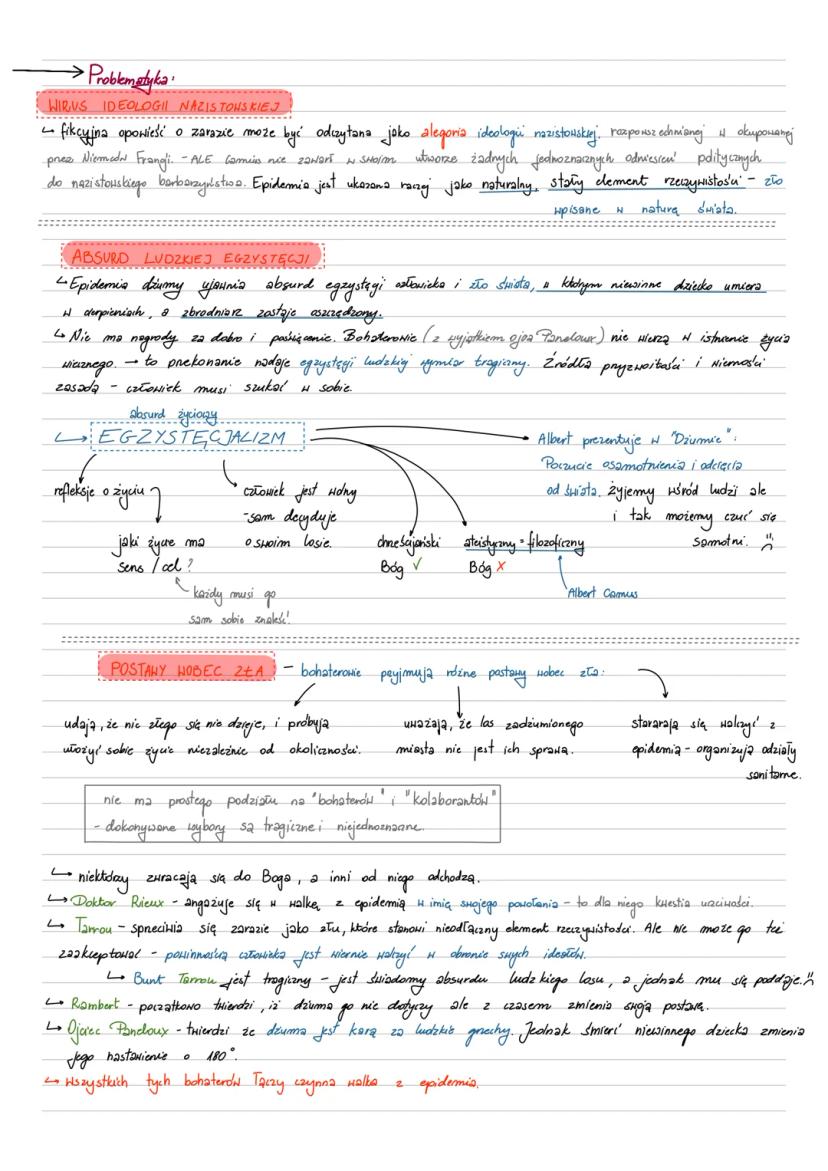 Problematyka:
WIRUS IDEOLOGII NAZISTOWSKIEJ
↳ fikcyjna opowieść o zarazie może być odczytana jako alegoria ideologii nazistowskiej, rozpowszechnianej w okupowanej
przez Niemców Francji. - ALE Camus nie zawarł w swoim utworze żadnych jednoznacznych odniesień politycznych
do nazistowskiego barbarzyństwa. Epidemia jest ukazana raczej jako naturalny, stały element rzeczywistości - zło
wpisane w naturę świata.
ABSURD LUDZKIEJ EGZYSTĘCJI
↳ Epidemia dżumy ujawnia absurd egzystęcji człowieka i zło świata, w którym niewinne dziecko umiera
w cierpieniach, a zbrodniarz zostaje oszczędzony.
↳ Nie ma nagrody za dobro i poświęcenie. Bohaterowie (z wyjątkiem ojca Paneloux) nie wierzą w istnienie życia
wiecznego. → to przekonanie nadaje egzystęcji ludzkiej wymiar tragiczny. Źródła przyzwoitości i wierności
zasadą - człowiek musi szukać w sobie.
absurd życiowy
↳ EGZYSTĘCJALIZM
Albert prezentuje w "Dżumie":
Poczucie osamotnienia i odcięcia
refleksje o życiu
człowiek jest wolny
od świata. żyjemy wśród ludzi ale
-sam decyduje
i tak możemy czuć się
jaki życie ma
o swoim losie.
chrześcijański
ateistyczny = filozoficzny
samotni. :(
sens / cel ?
Bóg ✓
Bóg ✗
każdy musi go
Albert Camus
sam sobie znaleść!
POSTAWY WOBEC ZŁA - bohaterowie przyjmują różne postawy wobec zła:
udają, że nic złego się nie dzieje, i próbują
ułożyć sobie życie niezależnie od okoliczności.
uważają, że los zadżumionego
miasta nie jest ich sprawą.
stararają się walczyć z
epidemią - organizują odziały
sanitarne.
nie ma prostego podziału na "bohaterów" i "kolaborantów"
- dokonywane wybory są tragiczne i niejednoznaczne.
↳ niektórzy zwracają się do Boga, a inni od niego odchodzą.
↳ Doktor Rieux - angażuje się w walkę z epidemią w imię swojego powołania - to dla niego kwestia uczciwości.
↳ Tarrou - sprzeciwia się zarazie jako złu, które stanowi nieodłączny element rzeczywistości. Ale nie może go też
zaakceptować - powinnością człowieka jest wiernie walczyć w obronie swych ideałów.
↳ Bunt Tarrou jest tragiczny - jest świadomy absurdu ludzkiego losu, a jednak mu się poddaje. :(
↳ Rambert - początkowo twierdzi, iż dżuma go nie dotyczy ale z czasem zmienia swoją postawę.
↳ Ojciec Paneloux - twierdzi że dżuma jest karą za ludzkie grzechy. Jednak śmierć niewinnego dziecka zmienia
jego nastawienie o 180°.
↳ Wszystkich tych bohaterów łączy czynna walka z epidemią.